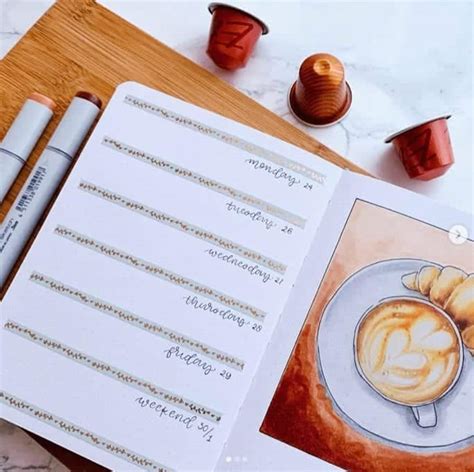 monday 25
tuesday 26
wednesday 27
thursday 28
friday 29
weekend 30/1